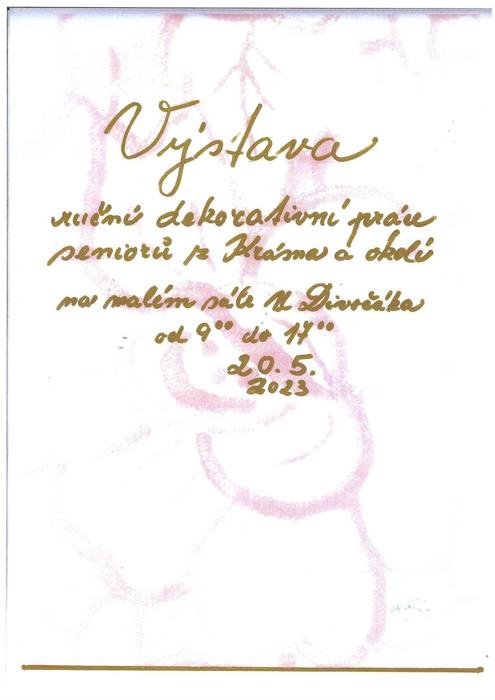 Výstava
ruční dekorativní práce
seniorů z Krásna a okolí
na malém sále U Divočáka
od 9⁰⁰ do 17⁰⁰
20.5.
2023